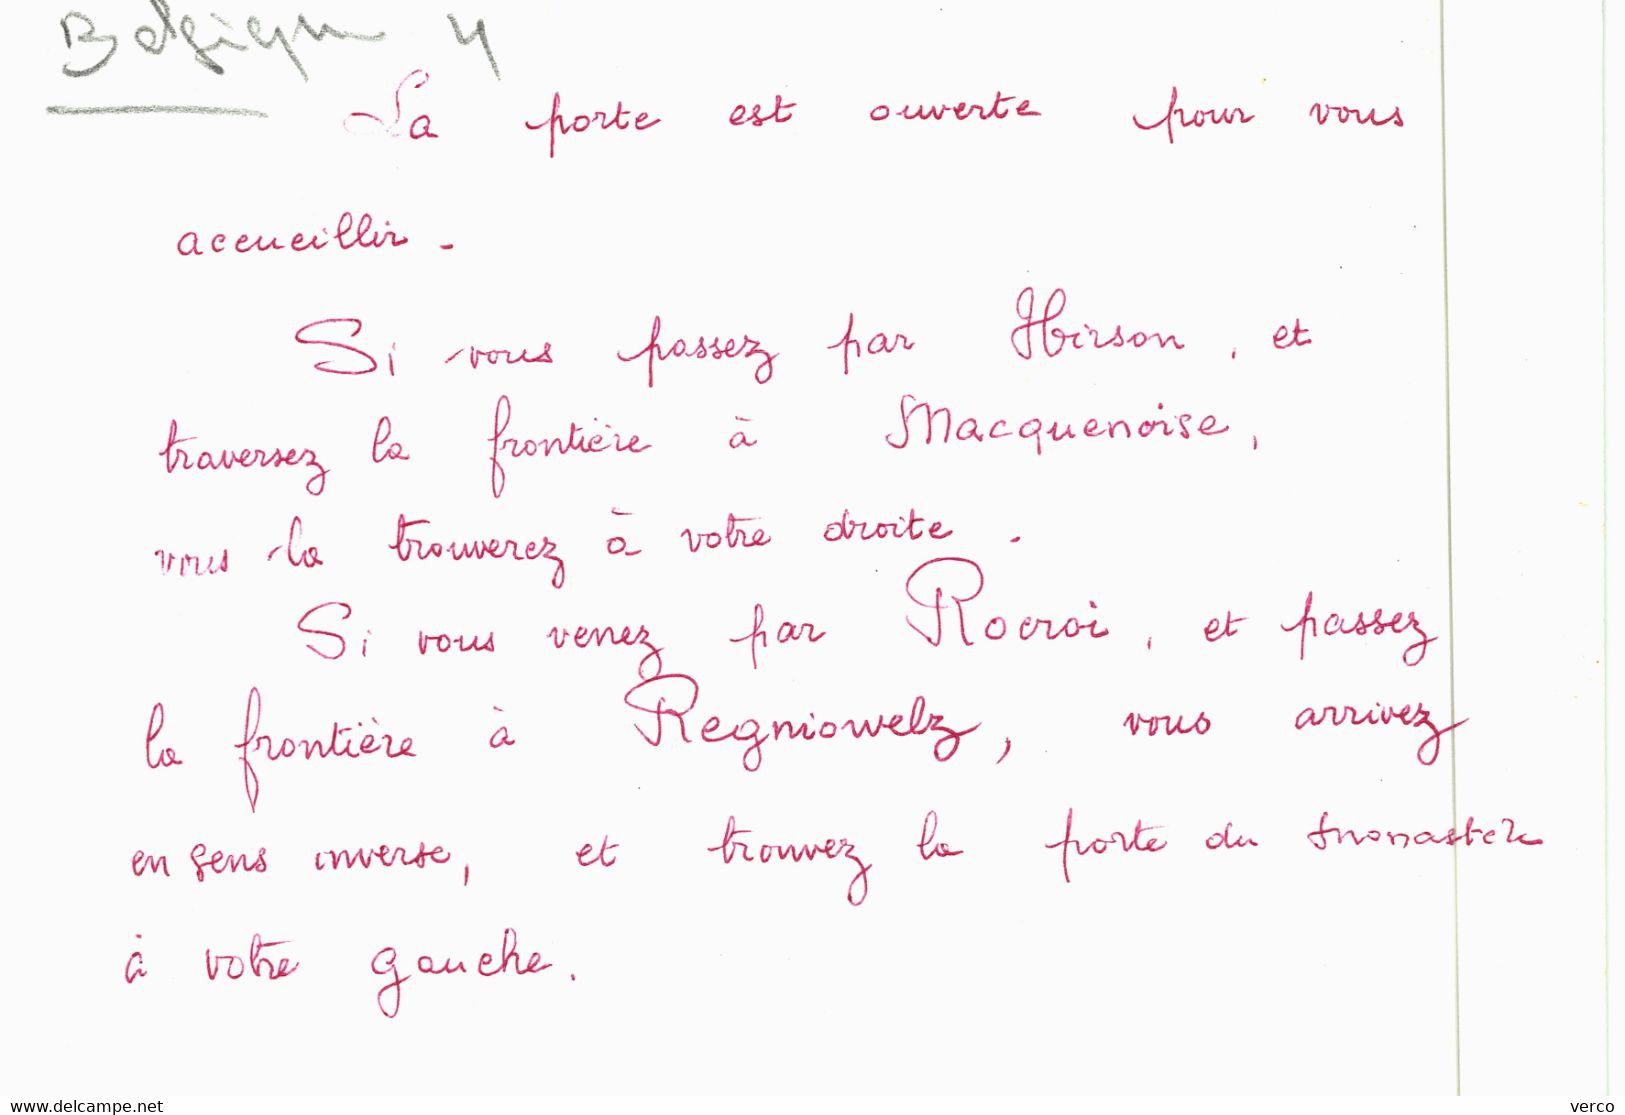 Belgique 4
La porte est ouverte pour vous
accueillir.
Si vous passez par Hirson, et
traversez la frontière à Macquenoise,
vous la trouverez à votre droite.
Si vous venez par Rocroi, et passez
la frontière à Regniowelz, vous arrivez
en sens inverse, et trouvez la porte du monastère
à votre gauche.
www.delcampe.net
verco